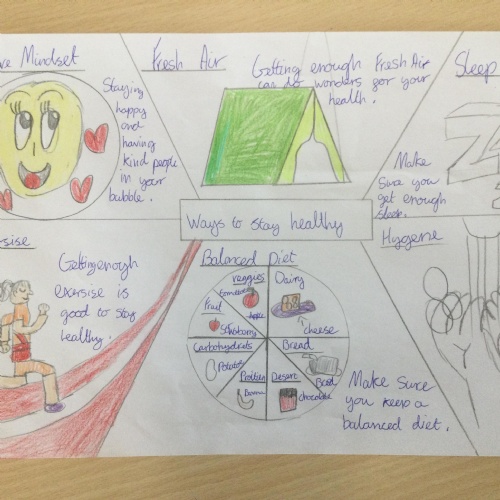 Mindset
Staying
happy
and
having
kind people
in your
bubble.
Fresh Air
Getting enough Fresh Air
can do wonders for your
health.
Sleep
Make
Sure you
get enough
sleep.
Ways to stay healthy
Getting enough
exersise is
good to stay
healthy.
Balanced Diet
veggies
tomatoe
Apple
Fruit
Stroborry
Carbohydrets
Potatos
Protien
Desert
chocolate
Dairy
cheese
Bread
Bread
Make Sure
you keep a
balanced diet.
Hygene